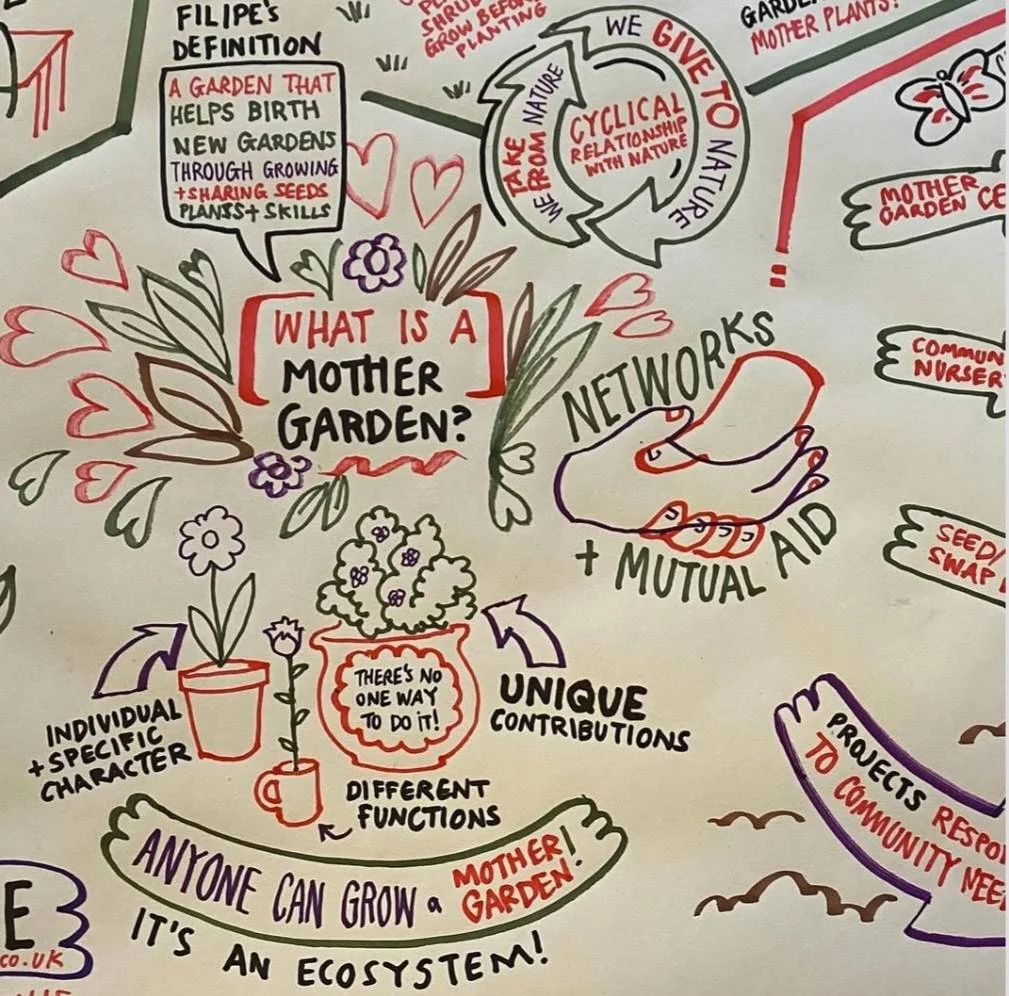 FILIPE'S
DEFINITION
A GARDEN THAT
HELPS BIRTH
NEW GARDENS
THROUGH GROWING
+SHARING SEEDS
PLANTS+ SKILLS
GROW BEFORE
PLANTING
WE GIVE TO NATURE
WE TAKE FROM NATURE
CYCLICAL
RELATIONSHIP
WITH NATURE
MOTHER PLANTS!
MOTHER
GARDEN CE
WHAT IS A
MOTHER
GARDEN?
NETWORKS
+ MUTUAL AID
COMMUN
NURSER
SEED/
SWAP
THERE'S NO
ONE WAY
TO DO IT!
INDIVIDUAL
+SPECIFIC
CHARACTER
UNIQUE
CONTRIBUTIONS
DIFFERENT
FUNCTIONS
PROJECTS RESPO
TO COMMUNITY NEE
ANYONE CAN GROW a MOTHER
GARDEN!
IT'S AN ECOSYSTEM!
E
CO.UK